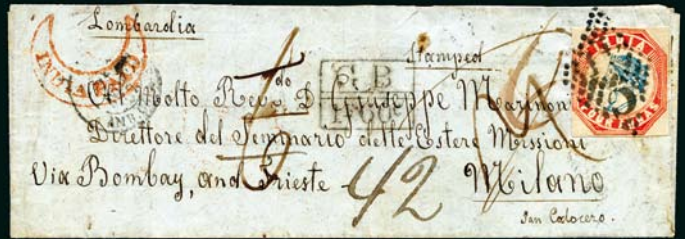 Lombardia
Stamped
INDIA PAID
INDIA
GB
1F60c
Al Molto Revdo D. Giuseppe Marinoni
Direttore del Seminario delle Estere Missioni
Via Bombay, and Trieste 42 Milano
San Calocero.